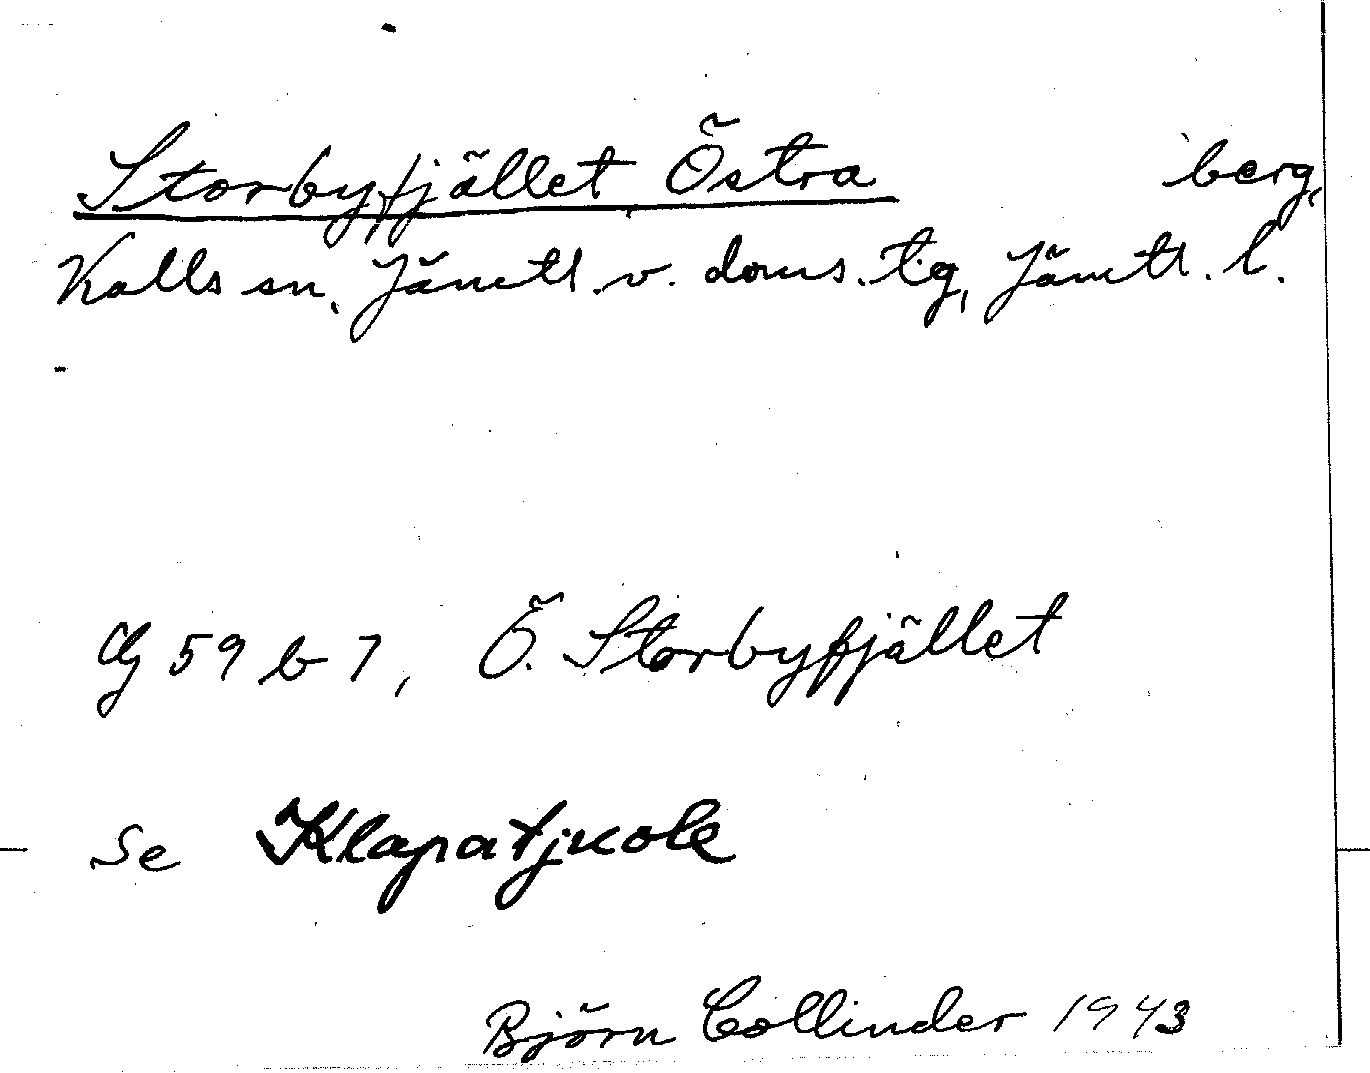 Storbyfjället Östra berg,
Kalls sn, Jämtl. v. doms. tg, Jämtl. l.
Gf 59 b 7, Ö. Storbyfjället
Se Klapatjuole
Björn Collinder 1943